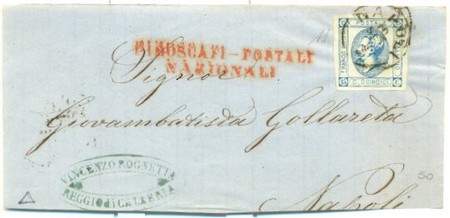 PIROSCAFI-POSTALI
NAZIONALI
FRANCO
C. QUINDICI
Signor
Giovambatista Gollareta
VINCENZO ROGNETTA
REGGIO di CALABRIA
Napoli
50